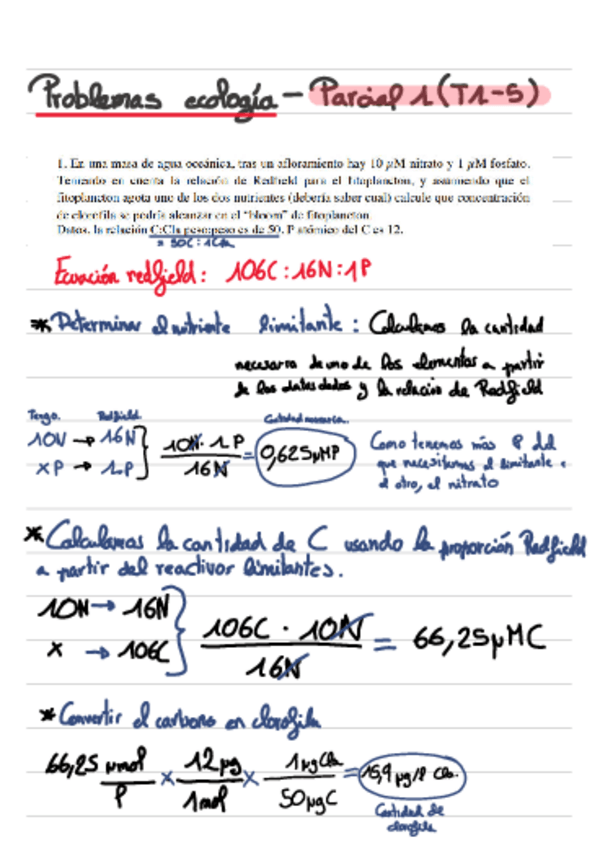 Problemas ecología - Parcial 1 (T1-5)
1. En una masa de agua oceánica, tras un afloramiento hay 10 µM nitrato y 1 µM fosfato.
Teniendo en cuenta la relación de Redfield para el fitoplancton, y asumiendo que el
fitoplancton agota uno de los dos nutrientes (debería saber cual) calcule que concentración
de clorofila se podría alcanzar en el "bloom" de fitoplancton.
Datos. la relación C:Cla peso:peso es de 50. P atómico del C es 12.
= 50C : 1Cla
Ecuación redfield: 106C:16N:1P
* Determinar el nutriente limitante: Calculamos la cantidad
necesaria de uno de los elementos a partir
de los datos dados y la relación de Redfield
Tengo. Redfield. Cantidad necesaria.
10N → 16N
xP → 1P
10N · 1P / 16N = 0,625µMP
Como tenemos más P del
que necesitamos el limitante e
el otro, el nitrato
* Calculamos la cantidad de C usando la proporción Redfield
a partir del reactivor limitantes.
10N → 16N
x → 106C
106C · 10N / 16N = 66,25µMC
* Convertir el carbono en clorofila
66,25 µmol / l × 12µg / 1mol × 1µgCla / 50µgC = 15,9 µg/l Cla.
Cantidad de
clorofila